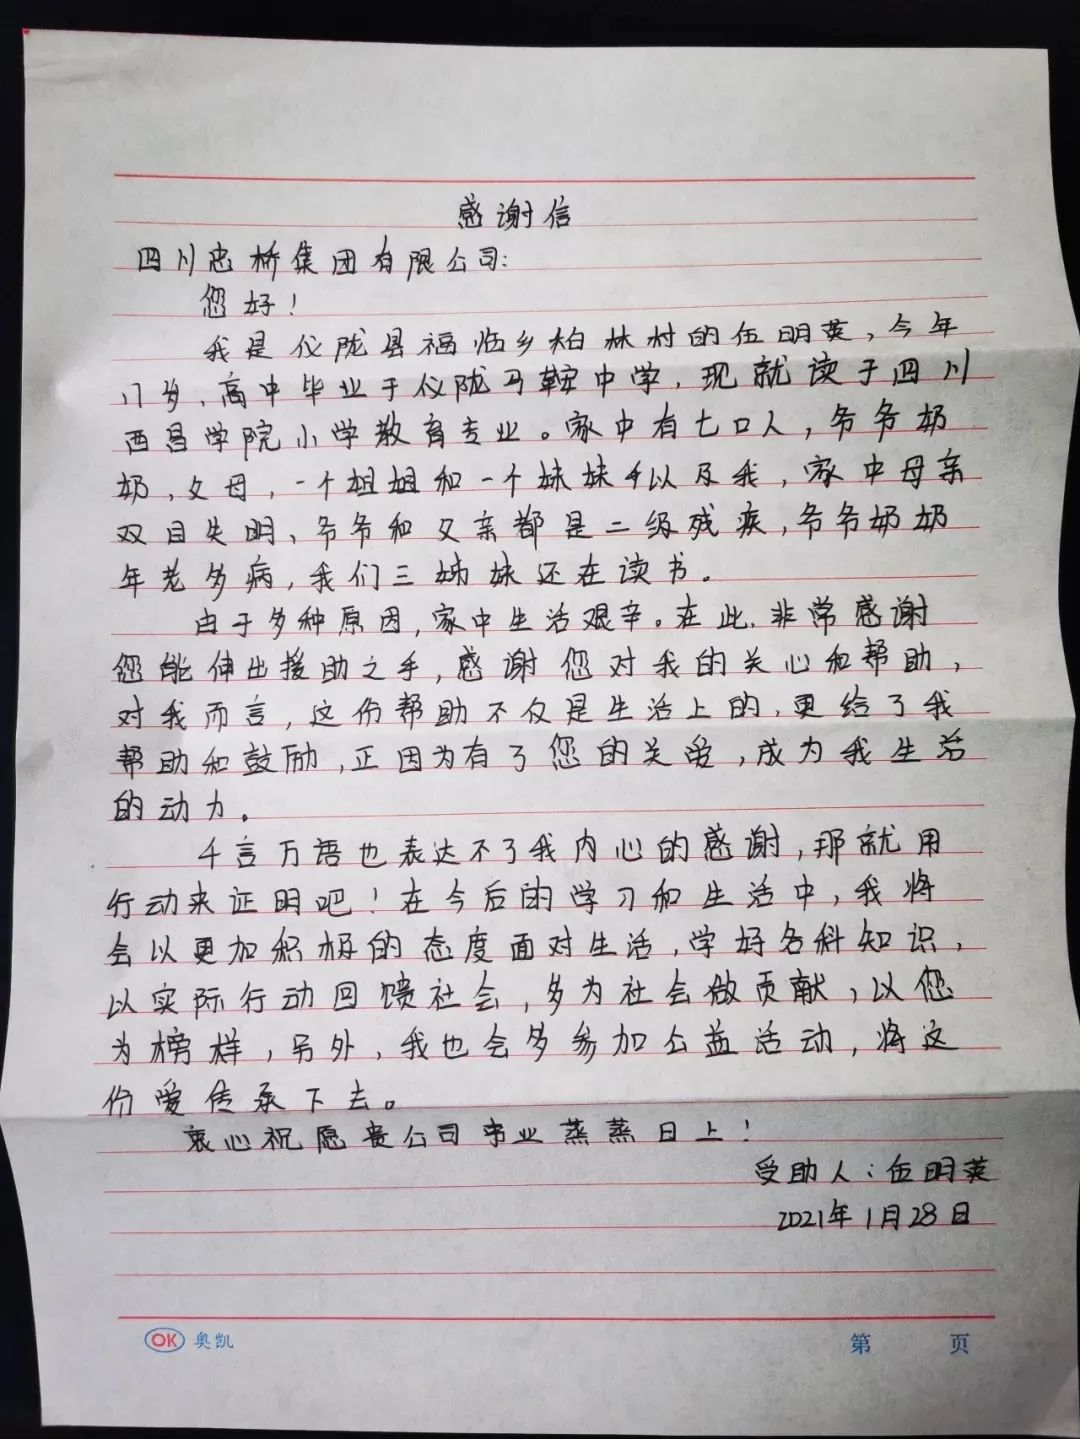 感谢信
四川忠桥集团有限公司:
您好!
我是仪陇县福临乡柏林村的伍明英,今年
17岁,高中毕业于仪陇马鞍中学,现就读于四川
西昌学院小学教育专业。家中有七口人,爷爷奶
奶,父母,一个姐姐和一个妹妹以及我,家中母亲
双目失明、爷爷和父亲都是二级残疾,爷爷奶奶
年老多病,我们三姊妹还在读书。
由于多种原因,家中生活艰辛。在此,非常感谢
您能伸出援助之手,感谢您对我的关心和帮助,
对我而言,这份帮助不仅是生活上的,更给了我
帮助和鼓励,正因为有了您的关爱,成为我生活
的动力。
千言万语也表达不了我内心的感谢,那就用
行动来证明吧!在今后的学习和生活中,我将
会以更加积极的态度面对生活,学好各科知识,
以实际行动回馈社会,多为社会做贡献,以您
为榜样,另外,我也会多参加公益活动,将这
份爱传承下去。
衷心祝愿贵公司事业蒸蒸日上!
受助人:伍明英
2021年1月28日
OK 奥凯
第 页